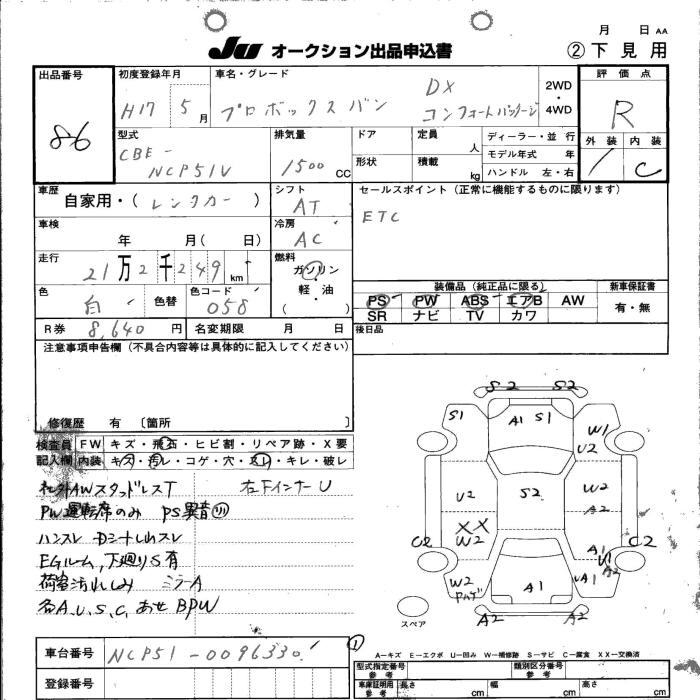 月 日 AA
JU オークション出品申込書 ②下見用
出品番号 86
初度登録年月 H17 5月
車名・グレード プロボックスバン DX コンフォートパッケージ
2WD・4WD
評価点 R
外装 内装 C
型式 CBE-NCP51V
排気量 1500 CC
ドア 定員 人
形状 積載 kg
ディーラー・並行
モデル年式 年
ハンドル 左・右
車歴 自家用・(レンタカー)
シフト AT
セールスポイント (正常に機能するものに限ります)
ETC
車検 年 月( 日)
冷房 AC
走行 21万2千249 km
燃料 ガソリン・軽・油 ( )
色 白 色替 色コード 058
装備品 (純正品に限る) 新車保証書
PS PW ABS エアB AW 有・無
SR ナビ TV カワ
R券 8,640 円 名変期限 月 日
後日品
注意事項申告欄 (不具合内容等は具体的に記入してください)
修復歴 有 〔箇所 〕
検査員 FW キズ・飛石・ヒビ割・リペア跡・X要
記入欄 内装 キズ・汚レ・コゲ・穴・スレ・キレ・破レ
社外AWスタッドレスT 右FインナーU
PW運転席のみ PS異音
ハンスレ Dシートしわスレ
EGルーム,下廻りS有
荷室汚れしみ ミラーA
各A.U.S.C.あせ BPW
S2 S2
S1 A1 S1 W1
U2
U2 S2 W2
A2
XX
W2
C2 C2
A1
U1
W2 ハゲ A1 UA1 A2
A2 A2
スペア
A-キズ E-エクボ U-凹み W-補修跡 S-サビ C-腐食 XX-交換済
車台番号 NCP51-0096330
登録番号
①
型式指定番号 参考 類別区分番号 参考
車庫証明用 参考 長さ cm 幅 cm 高さ cm